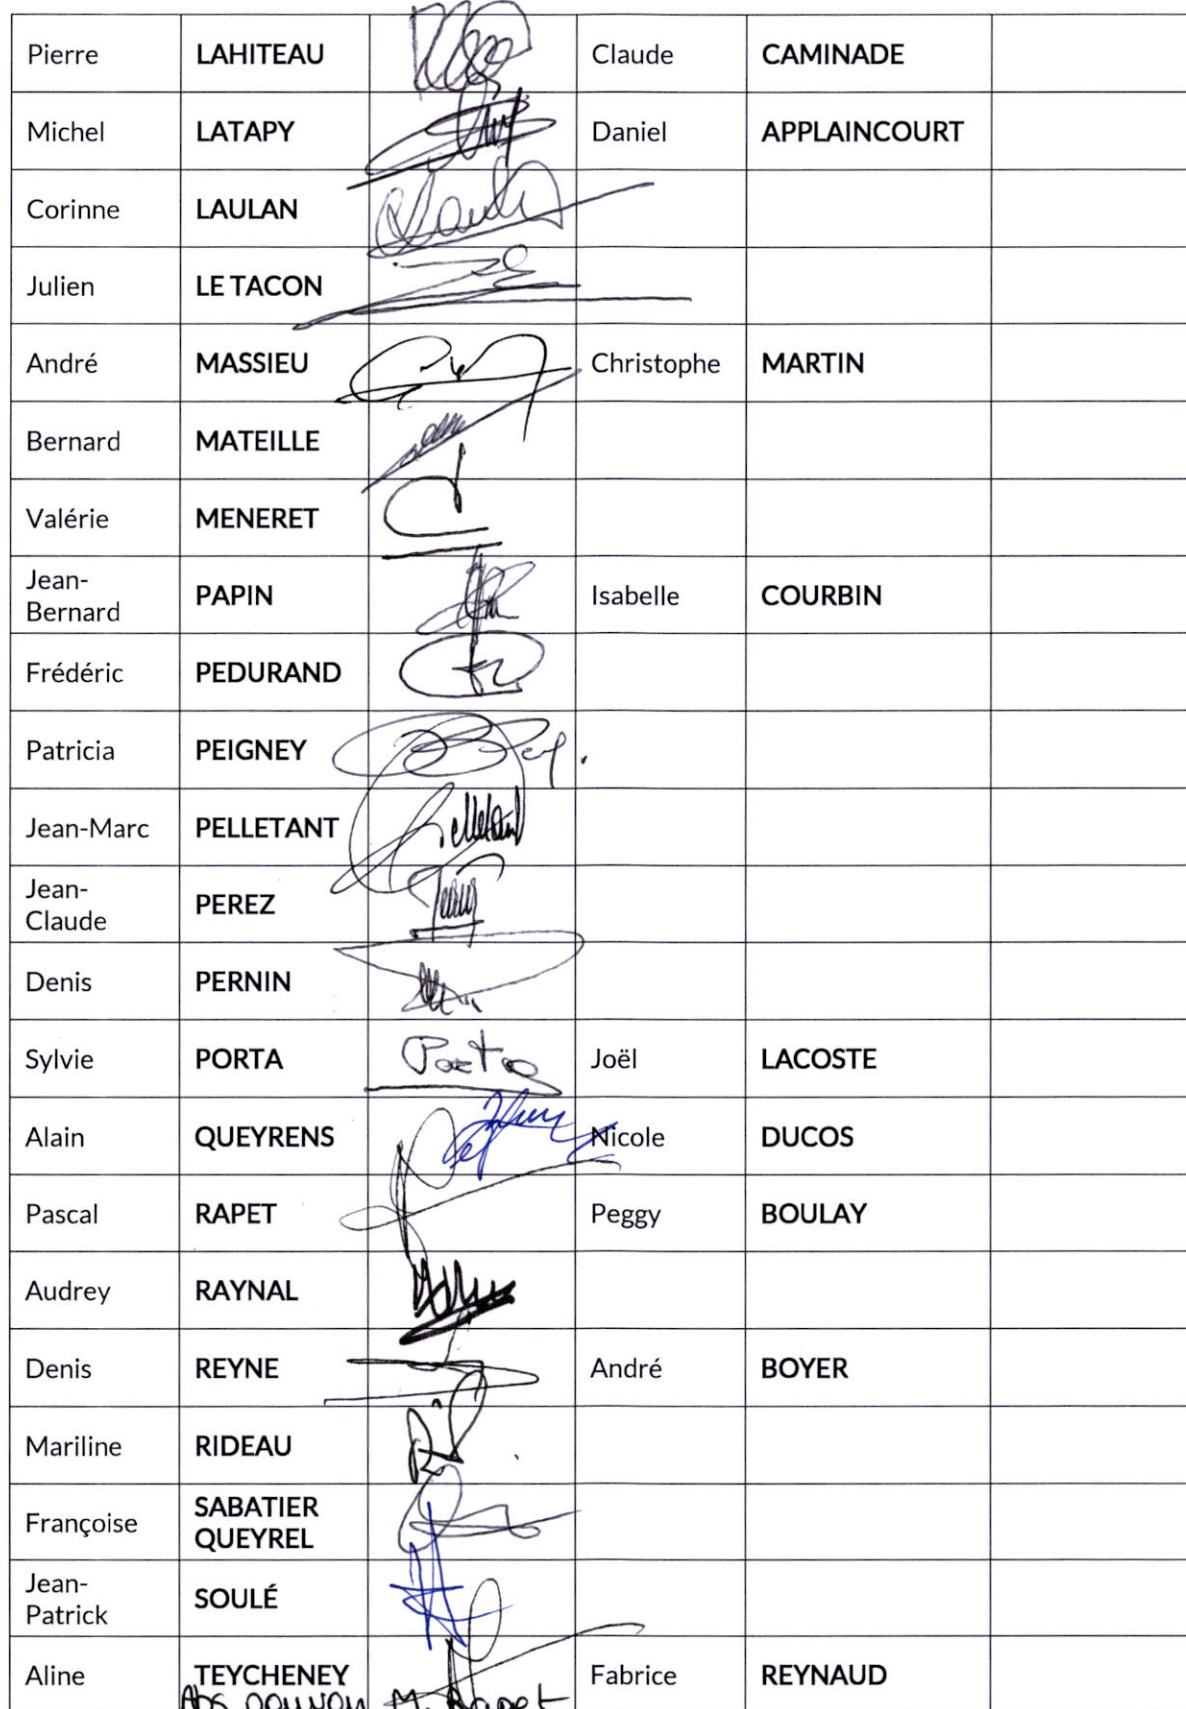 Pierre LAHITEAU Claude CAMINADE
Michel LATAPY Daniel APPLAINCOURT
Corinne LAULAN
Julien LE TACON
André MASSIEU Christophe MARTIN
Bernard MATEILLE
Valérie MENERET
Jean-
Bernard PAPIN Isabelle COURBIN
Frédéric PEDURAND
Patricia PEIGNEY
Jean-Marc PELLETANT Pelletant
Jean-
Claude PEREZ
Denis PERNIN
Sylvie PORTA Porta Joël LACOSTE
Alain QUEYRENS Nicole DUCOS
Pascal RAPET Peggy BOULAY
Audrey RAYNAL
Denis REYNE André BOYER
Mariline RIDEAU
Françoise SABATIER
QUEYREL
Jean-
Patrick SOULÉ
Aline TEYCHENEY Fabrice REYNAUD
M. Rapet